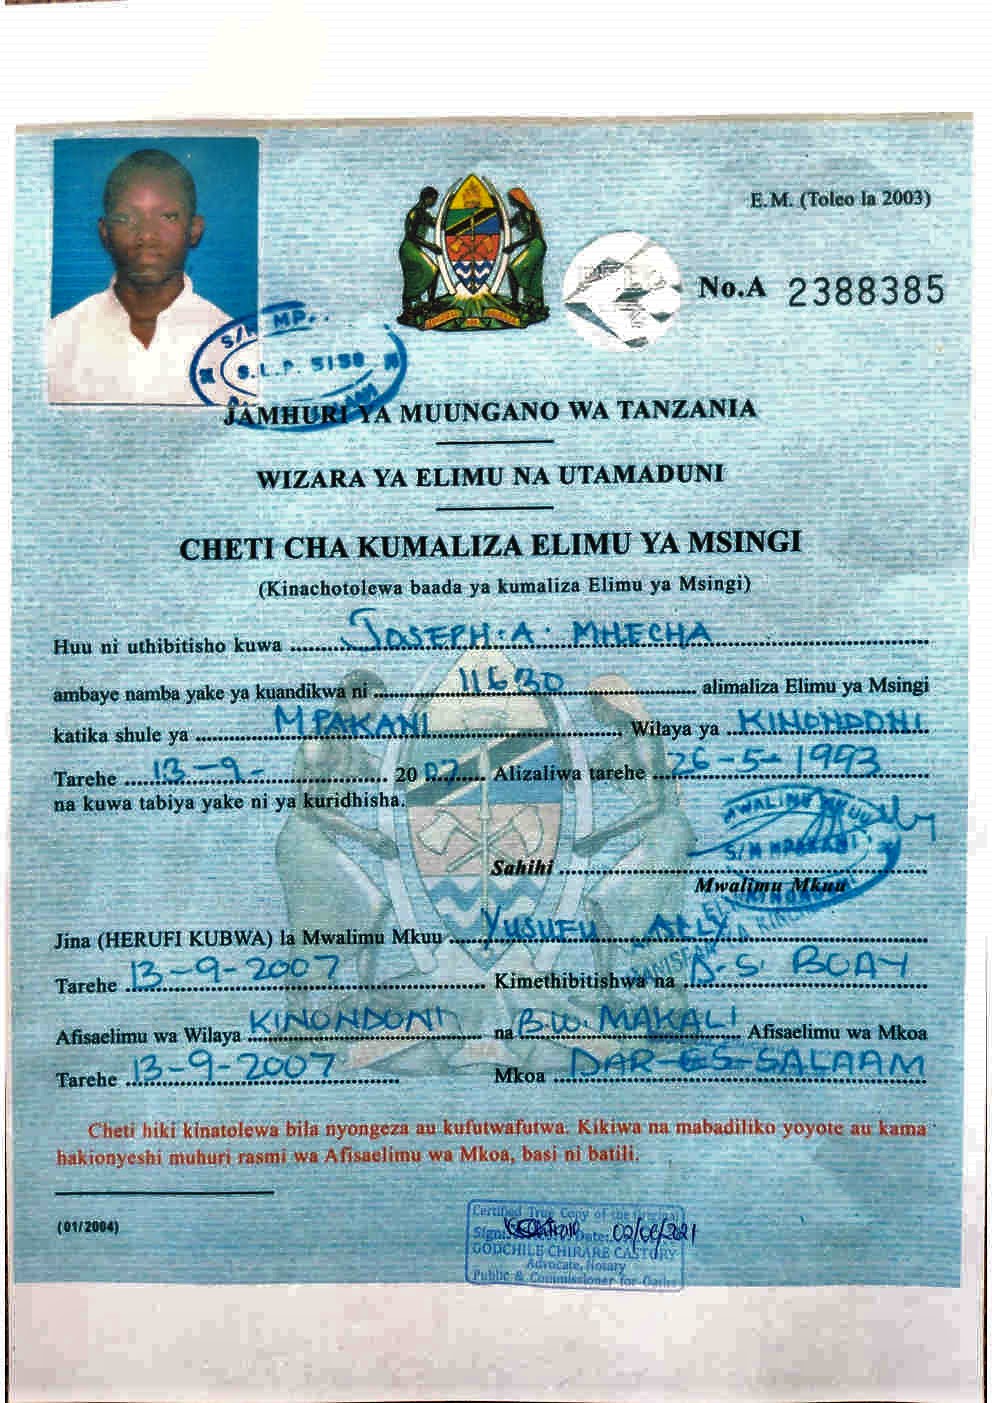 E.M. (Toleo la 2003)
No.A 2388385
S.L.P. 5150
JAMHURI YA MUUNGANO WA TANZANIA
WIZARA YA ELIMU NA UTAMADUNI
CHETI CHA KUMALIZA ELIMU YA MSINGI
(Kinachotolewa baada ya kumaliza Elimu ya Msingi)
Huu ni uthibitisho kuwa JOSEPH. A. MHECHA
ambaye namba yake ya kuandikwa ni 11630 alimaliza Elimu ya Msingi
katika shule ya MPAKANI Wilaya ya KINONDONI
Tarehe 13-9- 2007 Alizaliwa tarehe 26-5-1993
na kuwa tabiya yake ni ya kuridhisha.
MWALIMU MKUU
S/M MPAKANI
Sahihi
Mwalimu Mkuu
Jina (HERUFI KUBWA) la Mwalimu Mkuu YUSUFU ALLY
Tarehe 13-9-2007 Kimethibitishwa na D.S. BOAY
Afisaelimu wa Wilaya KINONDONI na B.W. MAKALI Afisaelimu wa Mkoa
Tarehe 13-9-2007 Mkoa DAR-ES-SALAAM
Cheti hiki kinatolewa bila nyongeza au kufutwafutwa. Kikiwa na mabadiliko yoyote au kama
hakionyeshi muhuri rasmi wa Afisaelimu wa Mkoa, basi ni batili.
(01/2004)
Certified True Copy of the Original
Sign: Date: 02/06/2021
GODCHILE CHIRARE CASTORY
Advocate, Notary
Public & Commissioner for Oaths